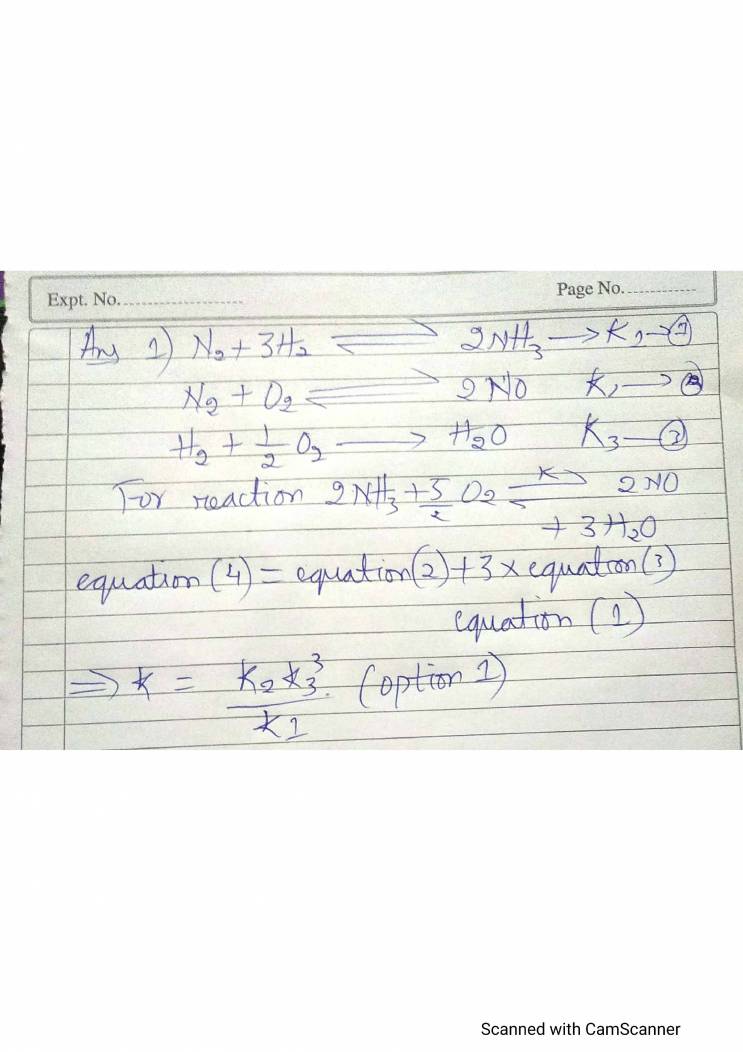 Expt. No.
Page No.
Ans 1) N₂ + 3H₂ ⇌ 2NH₃ → K₁ → ①
N₂ + O₂ ⇌ 2NO K₂ → ②
H₂ + 1/2 O₂ → H₂O K₃ — ③
For reaction 2NH₃ + 5/2 O₂ ⇌ K 2NO
+ 3H₂O
equation (4) = equation (2) + 3 × equation (3)
equation (1)
⇒ K = K₂ K₃³ / K1 . (option 1)
Scanned with CamScanner